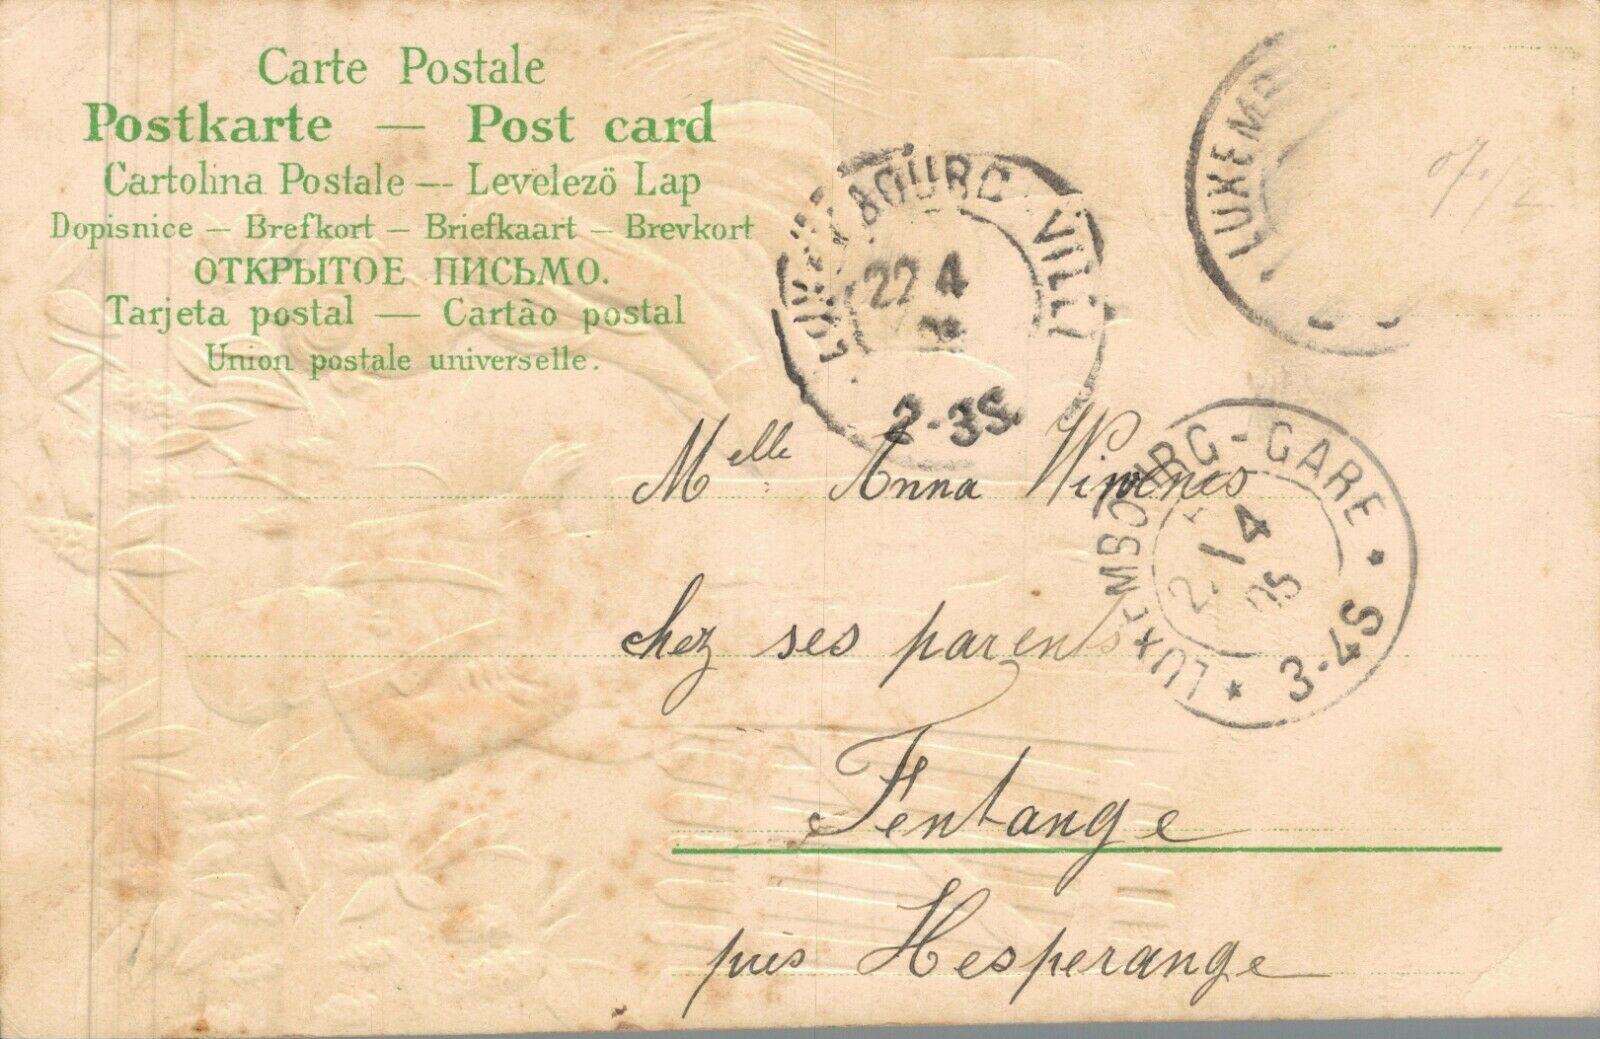 Carte Postale
Postkarte — Post card
Cartolina Postale — Levelezö Lap
Dopisnice — Brefkort — Briefkaart — Brevkort
ОТКРЫТОЕ ПИСЬМО.
Tarjeta postal — Cartão postal
Union postale universelle.
BOURG VILL
22 4
2-3S.
LUXEMB
LUXEMBOURG-GARE
4
05
3-4S
Melle Anna
chez ses parents
Fentange
près Hesperange